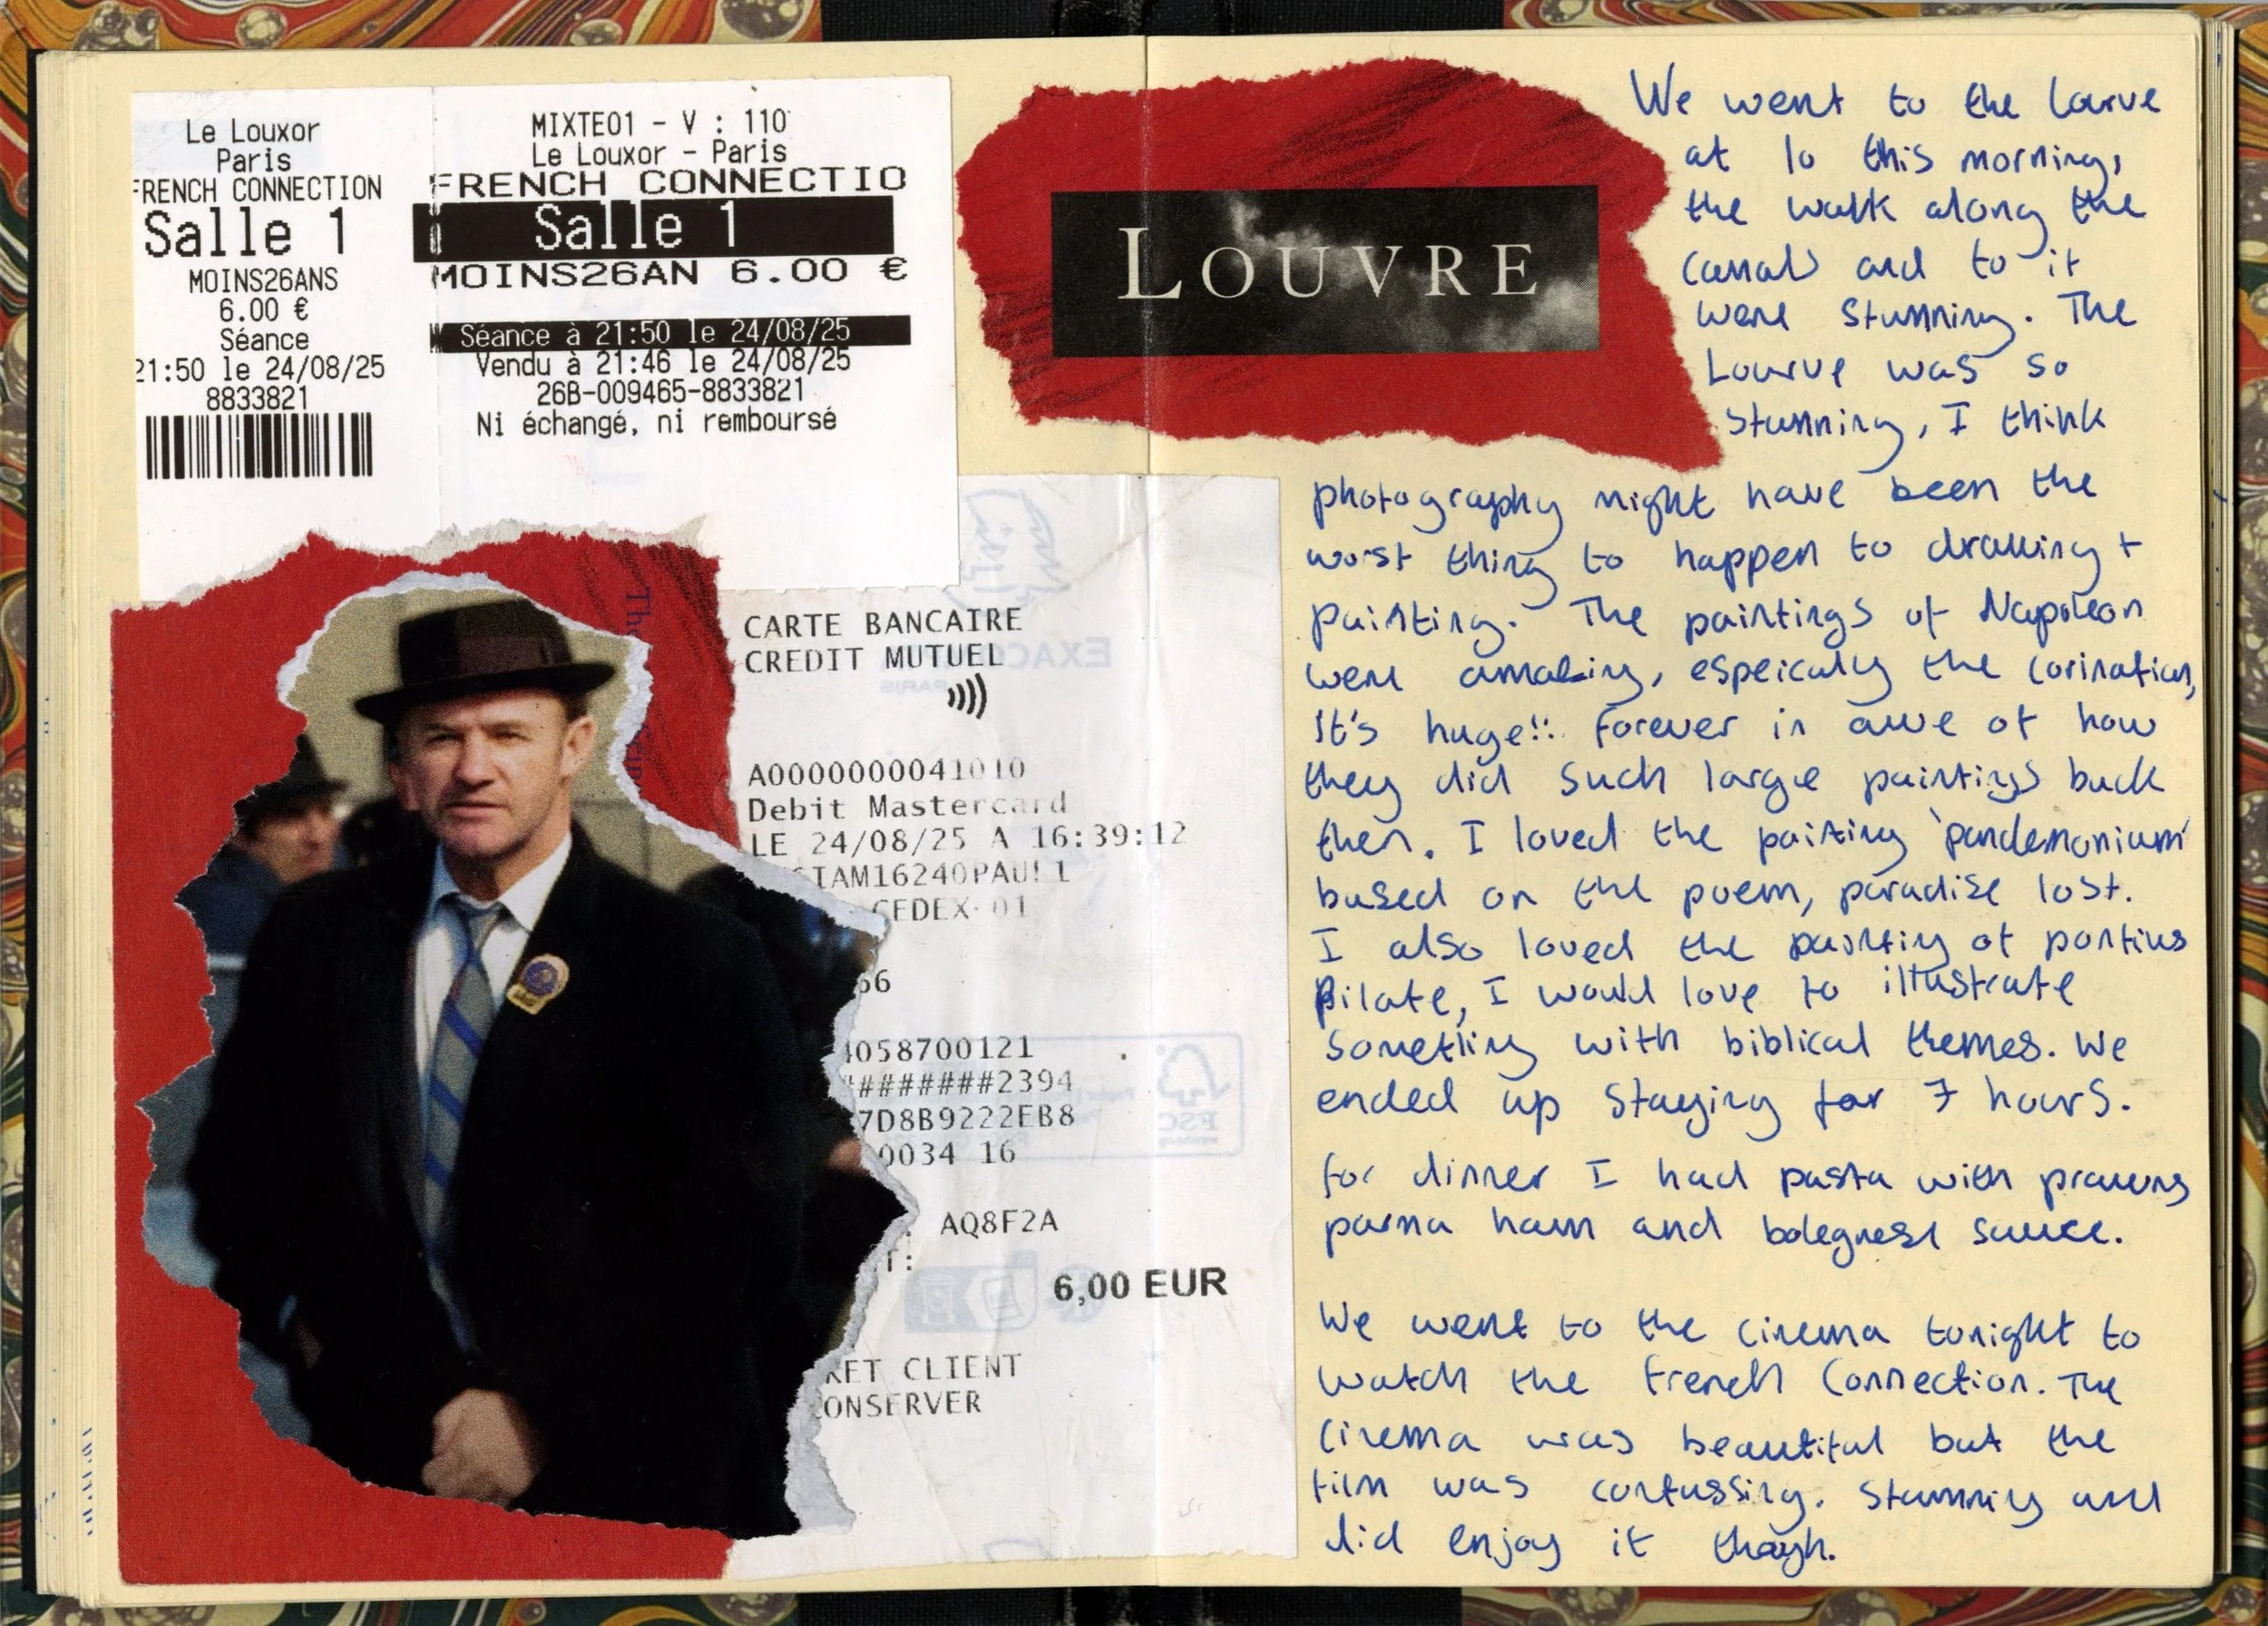 Le Louxor
Paris
FRENCH CONNECTION
Salle 1
MOINS26ANS
6.00 €
Séance
21:50 le 24/08/25
8833821
MIXTE01 - V : 110
Le Louxor - Paris
FRENCH CONNECTIO
Salle 1
MOINS26AN 6.00 €
Séance à 21:50 le 24/08/25
Vendu à 21:46 le 24/08/25
26B-009465-8833821
Ni échangé, ni remboursé
LOUVRE
CARTE BANCAIRE
CREDIT MUTUEL
A0000000041010
Debit Mastercard
LE 24/08/25 A 16:39:12
IAM16240PAUL1
CEDEX 01
66
4058700121
########2394
7D8B9222EB8
0034 16
AQ8F2A
T:
6,00 EUR
KET CLIENT
ONSERVER
EXACO
PARIS
FSC
We went to the Lourve
at 10 this morning,
the walk along the
canal and to it
were stunning. The
Lourve was so
stunning, I think
photography might have been the
worst thing to happen to drawing +
painting. The paintings of Napoleon
were amazing, espeicaly the corination,
It's huge!! Forever in awe of how
they did such large paintings back
then. I loved the painting 'pandemonium'
based on the poem, paradise lost.
I also loved the painting of pontius
pilate, I would love to illustrate
something with biblical themes. We
ended up staying for 7 hours.
for dinner I had pasta with prawns
parma ham and bolegnese sauce.
We went to the cinema tonight to
watch the French Connection. The
cinema was beautiful but the
film was confussing. Stunning and
did enjoy it though.